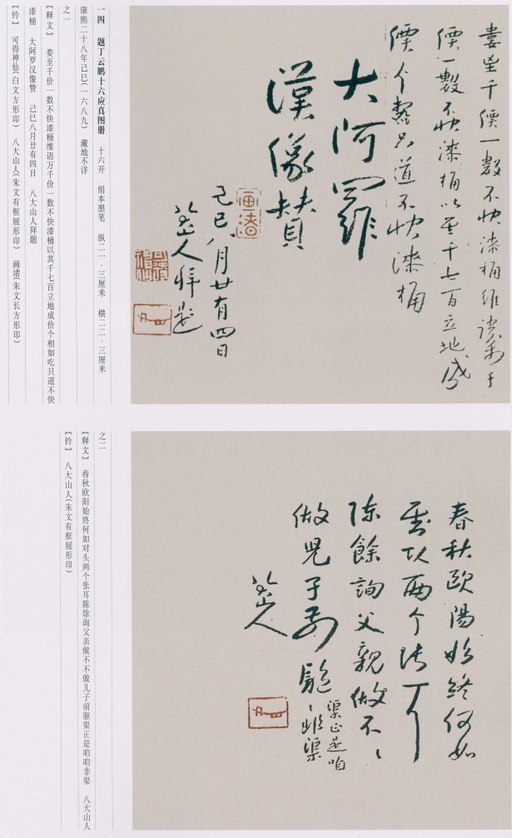 娄至千價一數不快漆桶維語萬千
價一數不快漆桶以其千七百立地成
價个只道不快漆桶
大阿羅
漢像赞
己巳八月廿有四日
八大山人拜题
画渚
一四 题丁云鹏十六应真图册 十六开 绢本墨笔 纵二一·三厘米 横二二·三厘米
康熙二十八年己巳(一六八九) 藏地不详
之一
【释文】 娄至千价一数不快漆桶维语万千价一数不快漆桶以其千七百立地成价个相如吃只道不快
漆桶 大阿罗汉像赞 己巳八月廿有四日 八大山人拜题
【钤】 可得神仙(白文方形印) 八大山人(朱文有框屐形印) 画渚(朱文长方形印)
春秋歐陽始終何如
两个张耳
陈餘詢父親做不〻
做兒子前
渠正是咱
〻渠
八大山人
之二
【释文】 春秋欧阳始终何如对头两个张耳陈馀询父亲做不不做儿子前驱渠正是咱咱非渠 八大山人
【钤】 八大山人(朱文有框屐形印)